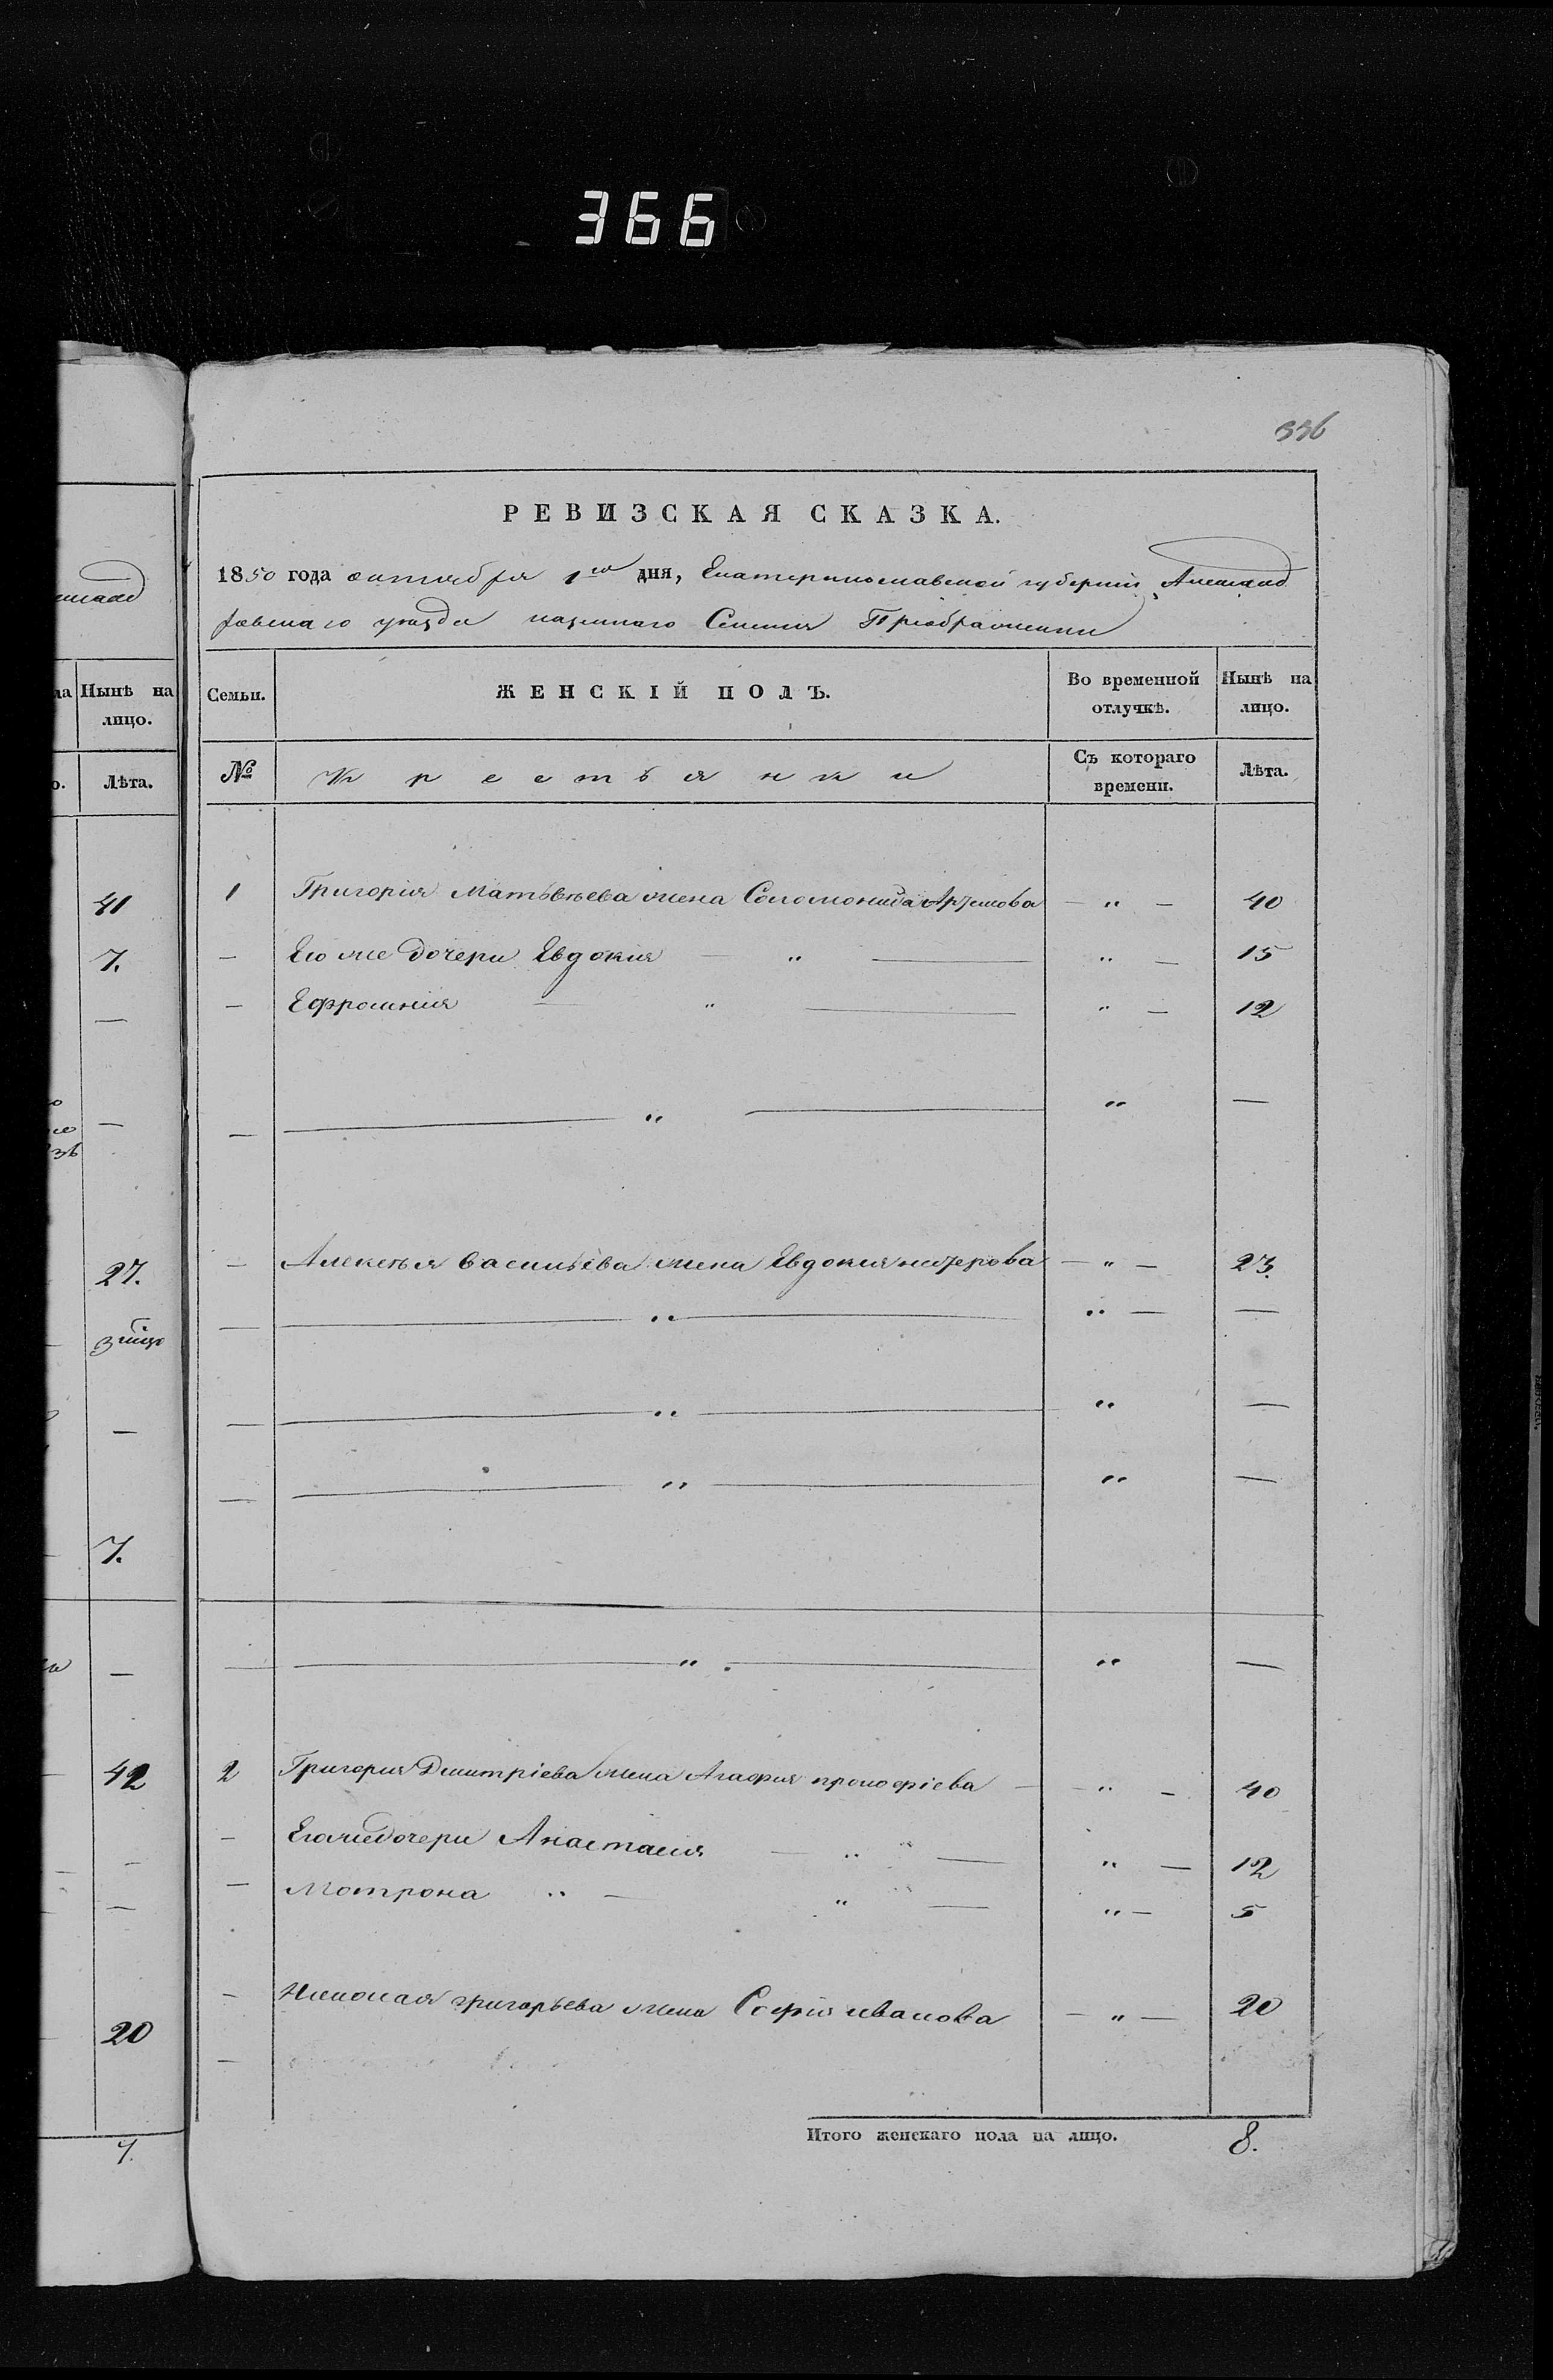 366
336
РЕВИЗСКАЯ СКАЗКА.
1850 года октября 1го дня, Екатеринославской губернiи Александ
ровскаго уезда казеннаго Селенiя Преображенки
Нынѣ на
лицо.
Лѣта.
41
7.
—
—
27.
—
7.
—
42
—
—
20
7.
Семьи. ЖЕНСКІЙ ПОЛЪ. Во временной отлучкѣ. Нынѣ на лицо.
№ Крестьянки Съ котораго времени. Лѣта.
1 Григорія Матвѣева жена Соломонида — „ — 40
— Его же дочери Евдокия — „ — „ — 15
— Ефросиния — „ — „ — 12
— — „ — „ —
— Алексѣя Васильева жена Евдокия — „ — 23.
— — „ — „ — —
— — „ — „ —
— — „ — „ —
— — „ — „ —
2 Григория Дмитріева жена Агафия прокофіева — — „ — 40
— Его же дочери Анастасия — „ — „ — 12
— Мотрона „ — „ — „ — 5
— Николая григорьева жена Софія иванова — „ — 20
—
Итого женскаго пола на лицо. 8.